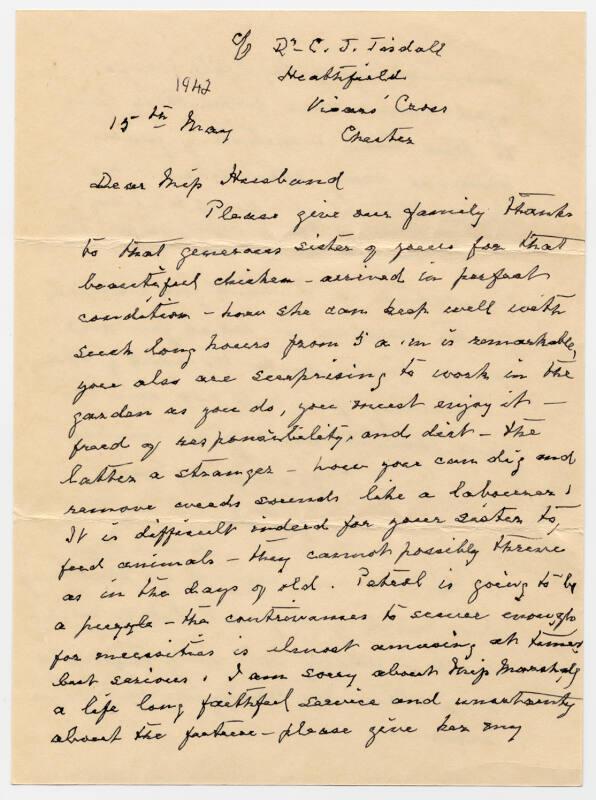 c/o Dr C. J. Tisdall
Heathfield
1942
Vicars' Cross
15th May
Chester
Dear Miss Husband
Please give our family thanks
to that generous sister of yours for that
beautiful chicken – arrived in perfect
condition – how she can keep well with
such long hours from 5 a.m is remarkable,
you also are surprising to work in the
garden as you do, you must enjoy it –
freed of responsibility, and dirt – the
latter a stranger – how you can dig and
remove weeds sounds like a labourer!
It is difficult indeed for your sister to
feed animals – they cannot possibly thrive
as in the days of old. Petrol is going to be
a puzzle – the contrivances to secure enough
for necessities is almost amusing at times
but serious. I am sorry about Miss Marshall
a life long faithful service and uncertainty
about the future – please give her my